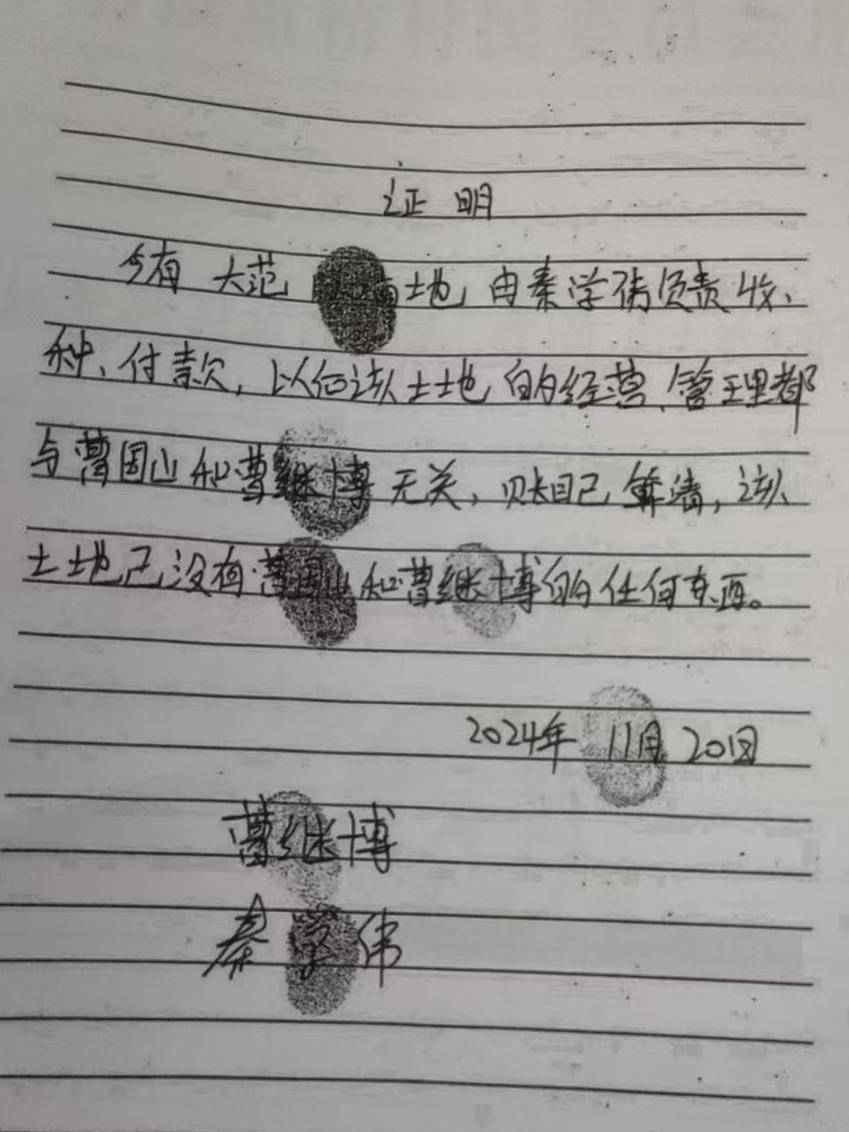 证明
今有 大范 地,由秦学伟负责收、
种、付款,以后该土地的经营、管理都
与曹国山和曹继博无关,账目已算清,该
土地已没有曹国山和曹继博的任何东西。
2024年 11月20日
曹继博
秦学伟